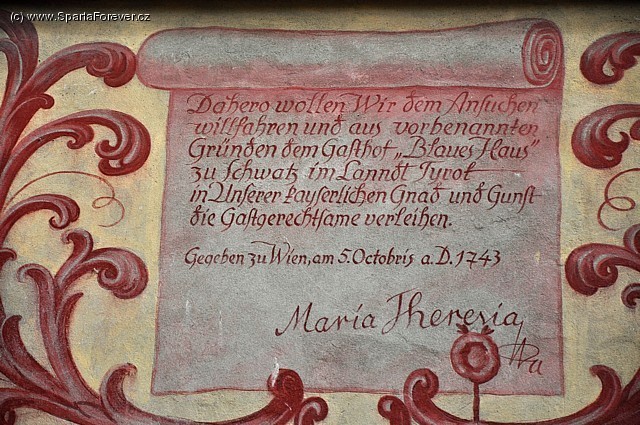 (c) www.SpartaForever.cz
Dahero wollen Wir dem Ansuchen
willfahren und aus vorbenannten
Gründen dem Gasthof „Blaues Haus"
zu Schwatz im Lanndt Tyrol
in Unserer kayserlichen Gnad und Gunst
die Gastgerechtsame verleihen.
Gegeben zu Wien, am 5. Octobris a. D. 1743
Maria Theresia